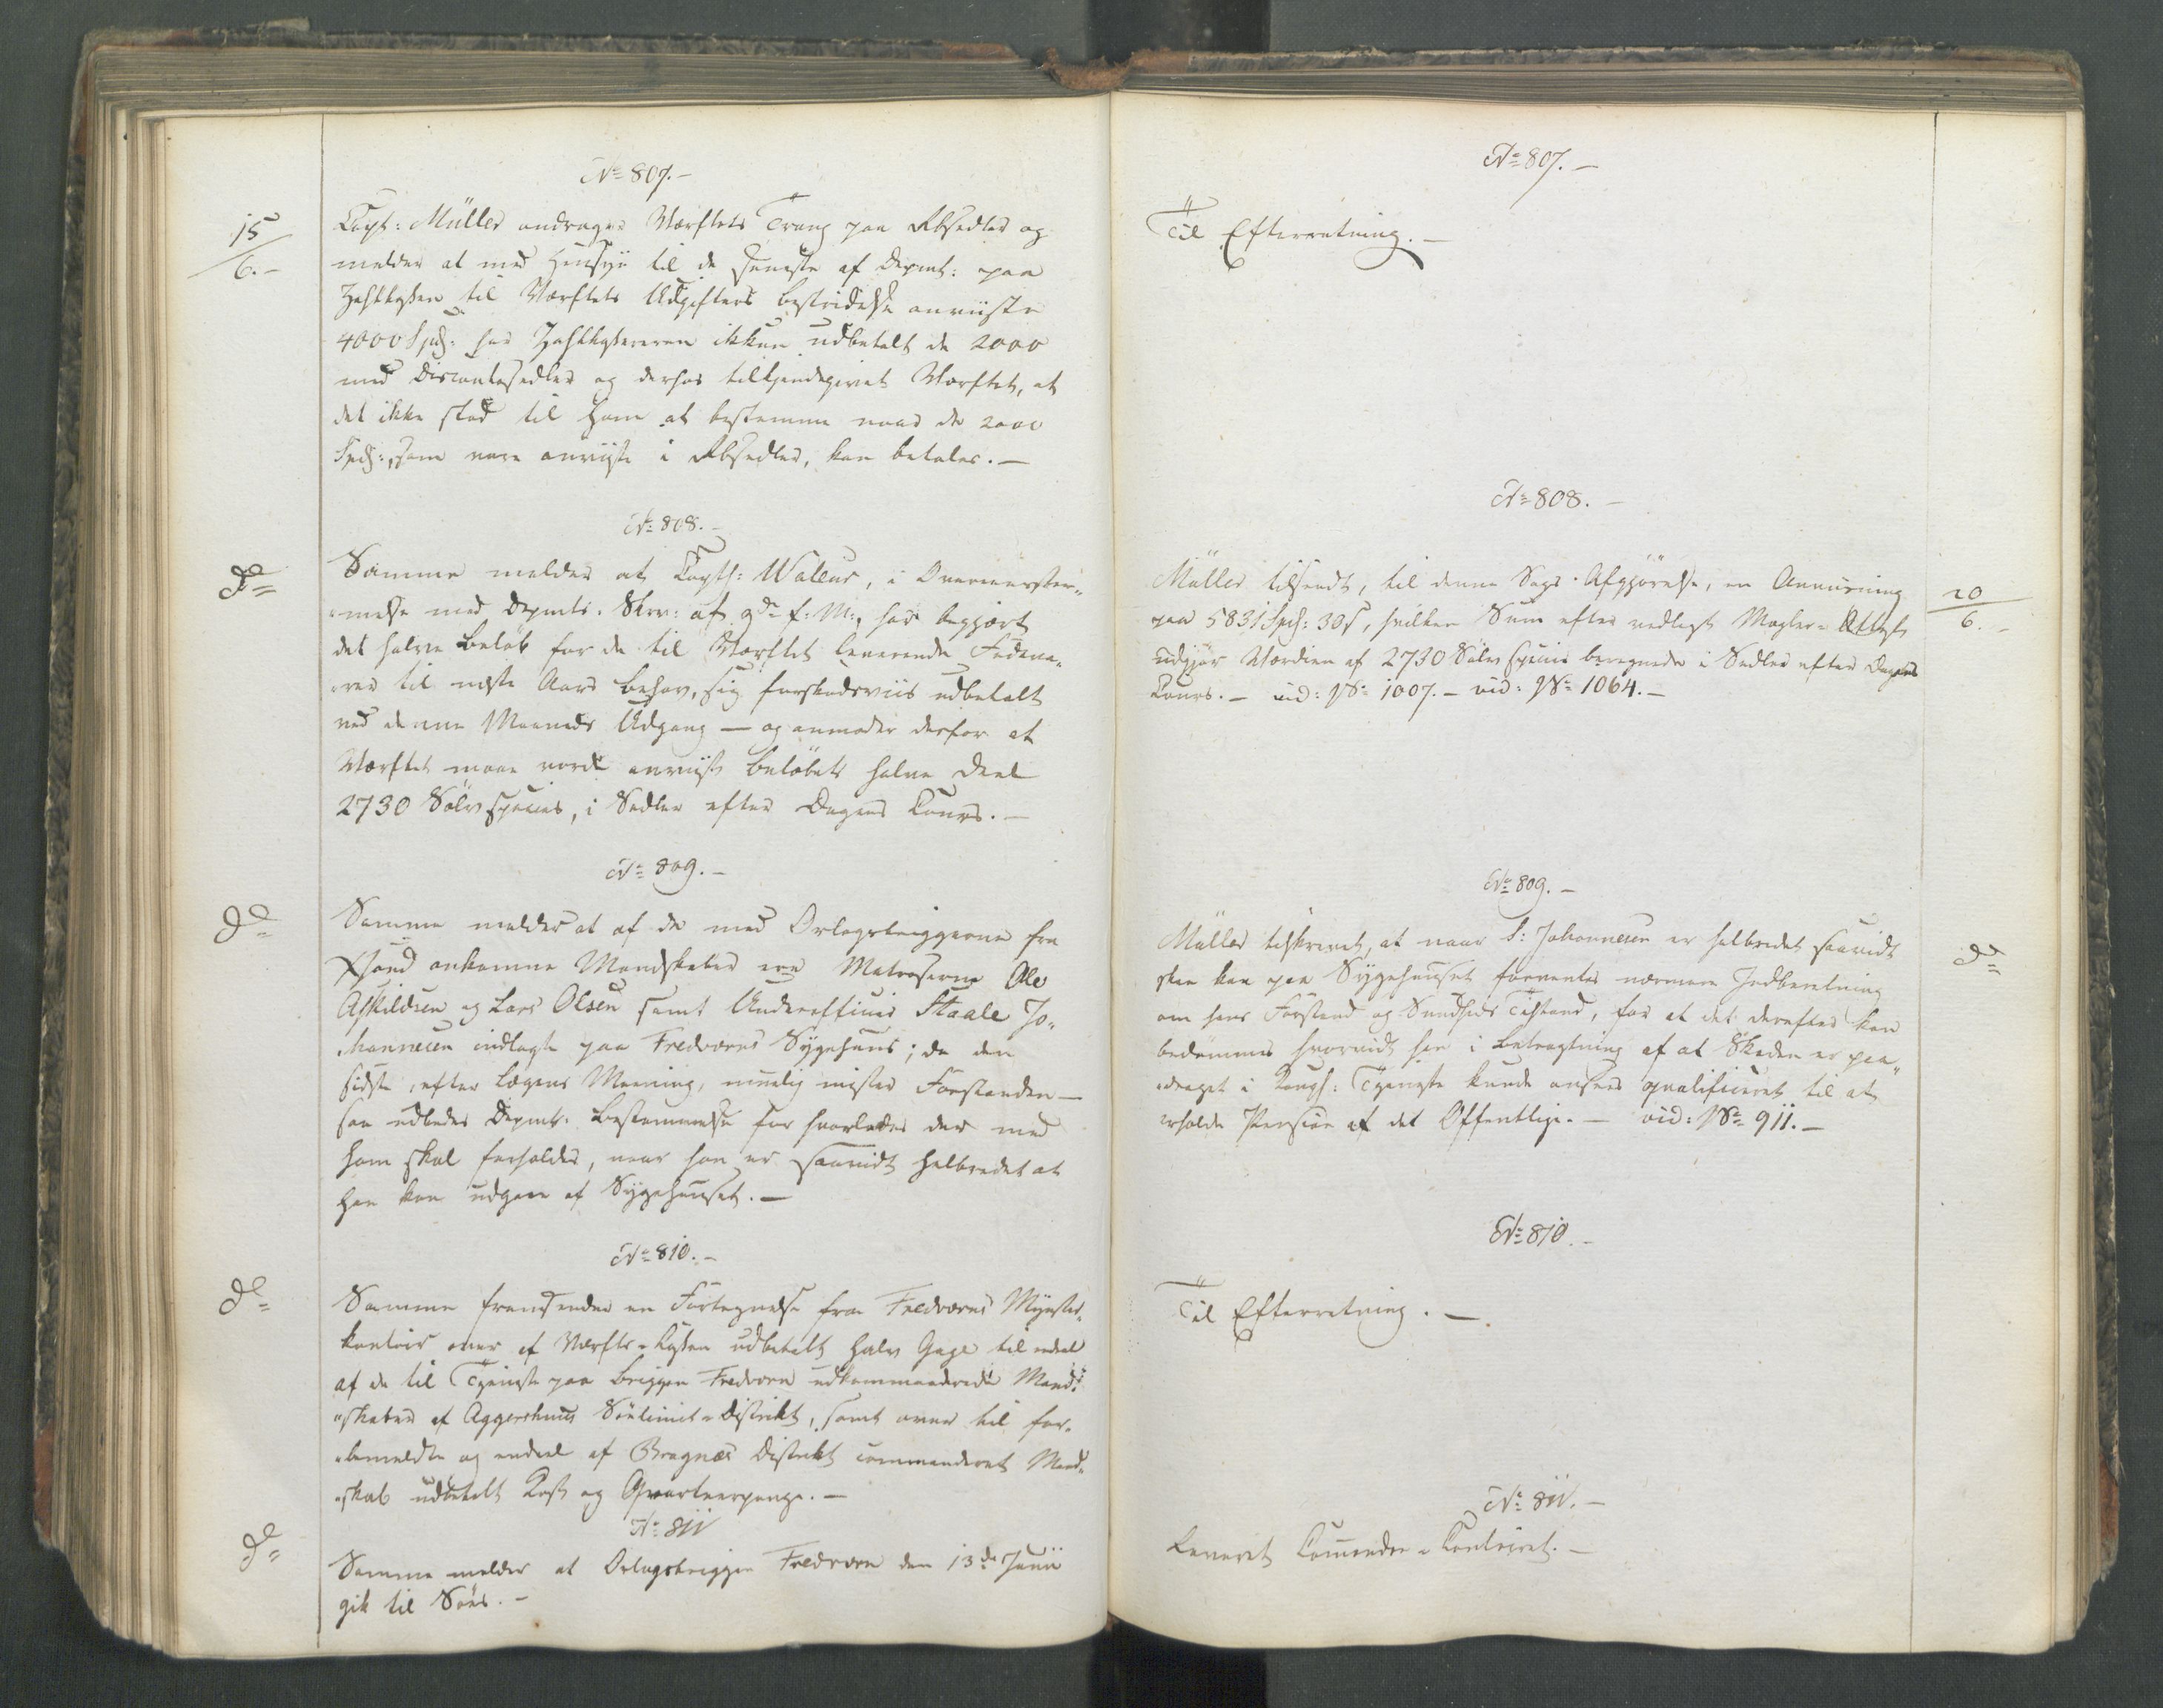 No 807.-
15/6.-
Capt: Müller andrager Værftets Trang paa Rbsedler og
melder at med Hensyn til de seneste af Depmt: paa
Zahlkassen til Værftets Udgifters bestridelse anviiste
4000 Spd: har Zahlkassereren ikkun udbetalt de 2000
med Discontosedler og derhos tilkjendegivet Værftet, at
det ikke stod til ham at bestemme naar de 2000
Spd:, som vare anviiste i Rbsedler, kan betales.-
No 808.-
do
Samme melder at Capth: Walleur, i Overeensstem-
-melse med Depmts. Skrv: af 9de f: M:, har begjært
det halve Beløb for de til Værftet leverende
til næste Aars behov, sig forskudsviis udbetalt
ved denne Maaneds Udgang - og anmoder derfor at
Værftet maae vorde anviist beløbets halve Deel
2730 Sølvspecies, i Sedler efter Dagens Cours.-
No 809.-
do
Samme melder at af de med Orlogsbriggerne fra
Xsand ankomne Mandskaber ere Matroserne Ole
Askildsen og Lars Olsen samt Underofficier Staale Jo-
-hannesen indlagte paa Fredværns Sygehuus; da den
sidste, efter Lægens Meening, muelig mister Forstanden -
saa udbedes Depmts. Bestemmelse for hvorledes der med
ham skal forholdes, naar han er saavidt helbredet at
han kan udgaae af Sygehuuset.-
No 810.-
do
Samme fremsender en Fortegnelse fra Fredværns Mynster-
kontoir over af Værfts-Kassen udbetalt halv Gage til endeel
af de til Tjeneste paa Briggen Fredværn udkommanderede Mand-
-skaber af Aggershuus Søelimit-Distrikt, samt over til for-
-bemeldte og endeel af Bragnæs Distrikt commanderet Mand-
-skab udbetalt Kost og Qvarteerpenge.-
No 811
do
Samme melder at Orlogsbriggen Fredværn den 13de Junii
gik til Søes.-
No 807.-
Til Efterretning.-
No 808.-
Müller tilsendt, til denne Sags Afgjørelse, en Anviisning
20/6.-
paa 5831 Spd: 30 s, hvilken Sum efter vedlagt Mægler-Attest
udgjør Værdien af 2730 Sølv Specier beregnede i Sedler efter Dagens
Cours.- vid: No 1007.- vid: No 1064.-
No 809.-
Müller tilskrevet, at naar S: Johannesen er helbredet saavidt
do
skee kan paa Sygehuuset forventes nærmere Indberetning
om hans Forstand og Sundheds Tilstand, for at det derefter kan
bedømmes hvorvidt han i Betragtning af at Skaden er paa-
-draget i Kongl: Tjeneste kunde ansees qualificeret til at
erholde Pension af det Offentlige.- vid: No 911.-
No 810.-
Til Efterretning.-
No 811.-
Leveret Commando-Contoiret.-